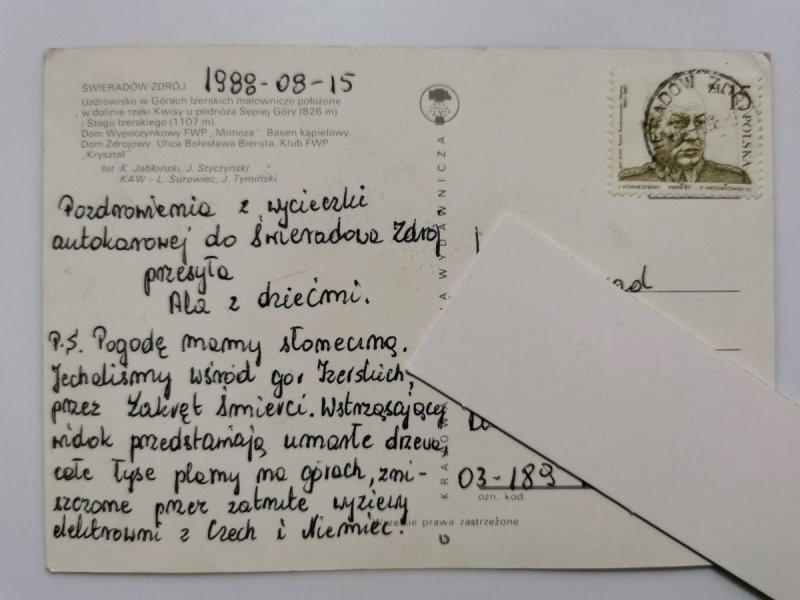 ŚWIERADÓW ZDRÓJ 1988-08-15
Uzdrowisko w Górach Izerskich malowniczo położone
w dolinie rzeki Kwisy u podnóża Sępiej Góry (826 m)
i Stogu Izerskiego (1107 m).
Dom Wypoczynkowy FWP „Mimoza" Basen kąpielowy.
Dom Zdrojowy. Ulica Bolesława Bieruta. Klub FWP
„Kryształ"
fot K. Jabłoński, J. Styczyński
KAW – L. Surowiec, J. Tymiński
Pozdrowienia z wycieczki
autokarowej do Świeradowa Zdrój
przesyła
Ala z dziećmi.
P.S. Pogodę mamy słoneczną.
Jechaliśmy wśród gór Izerskich,
przez Zakręt Śmierci. Wstrząsający
widok przedstawiają umarłe drzewa,
całe łyse plamy na górach, zni-
szczone przez zatrute wyziewy
elektrowni z Czech i Niemiec.
WYDAWNICZA
POLSKA
15
03-189
ozn. kod.
prawa zastrzeżone